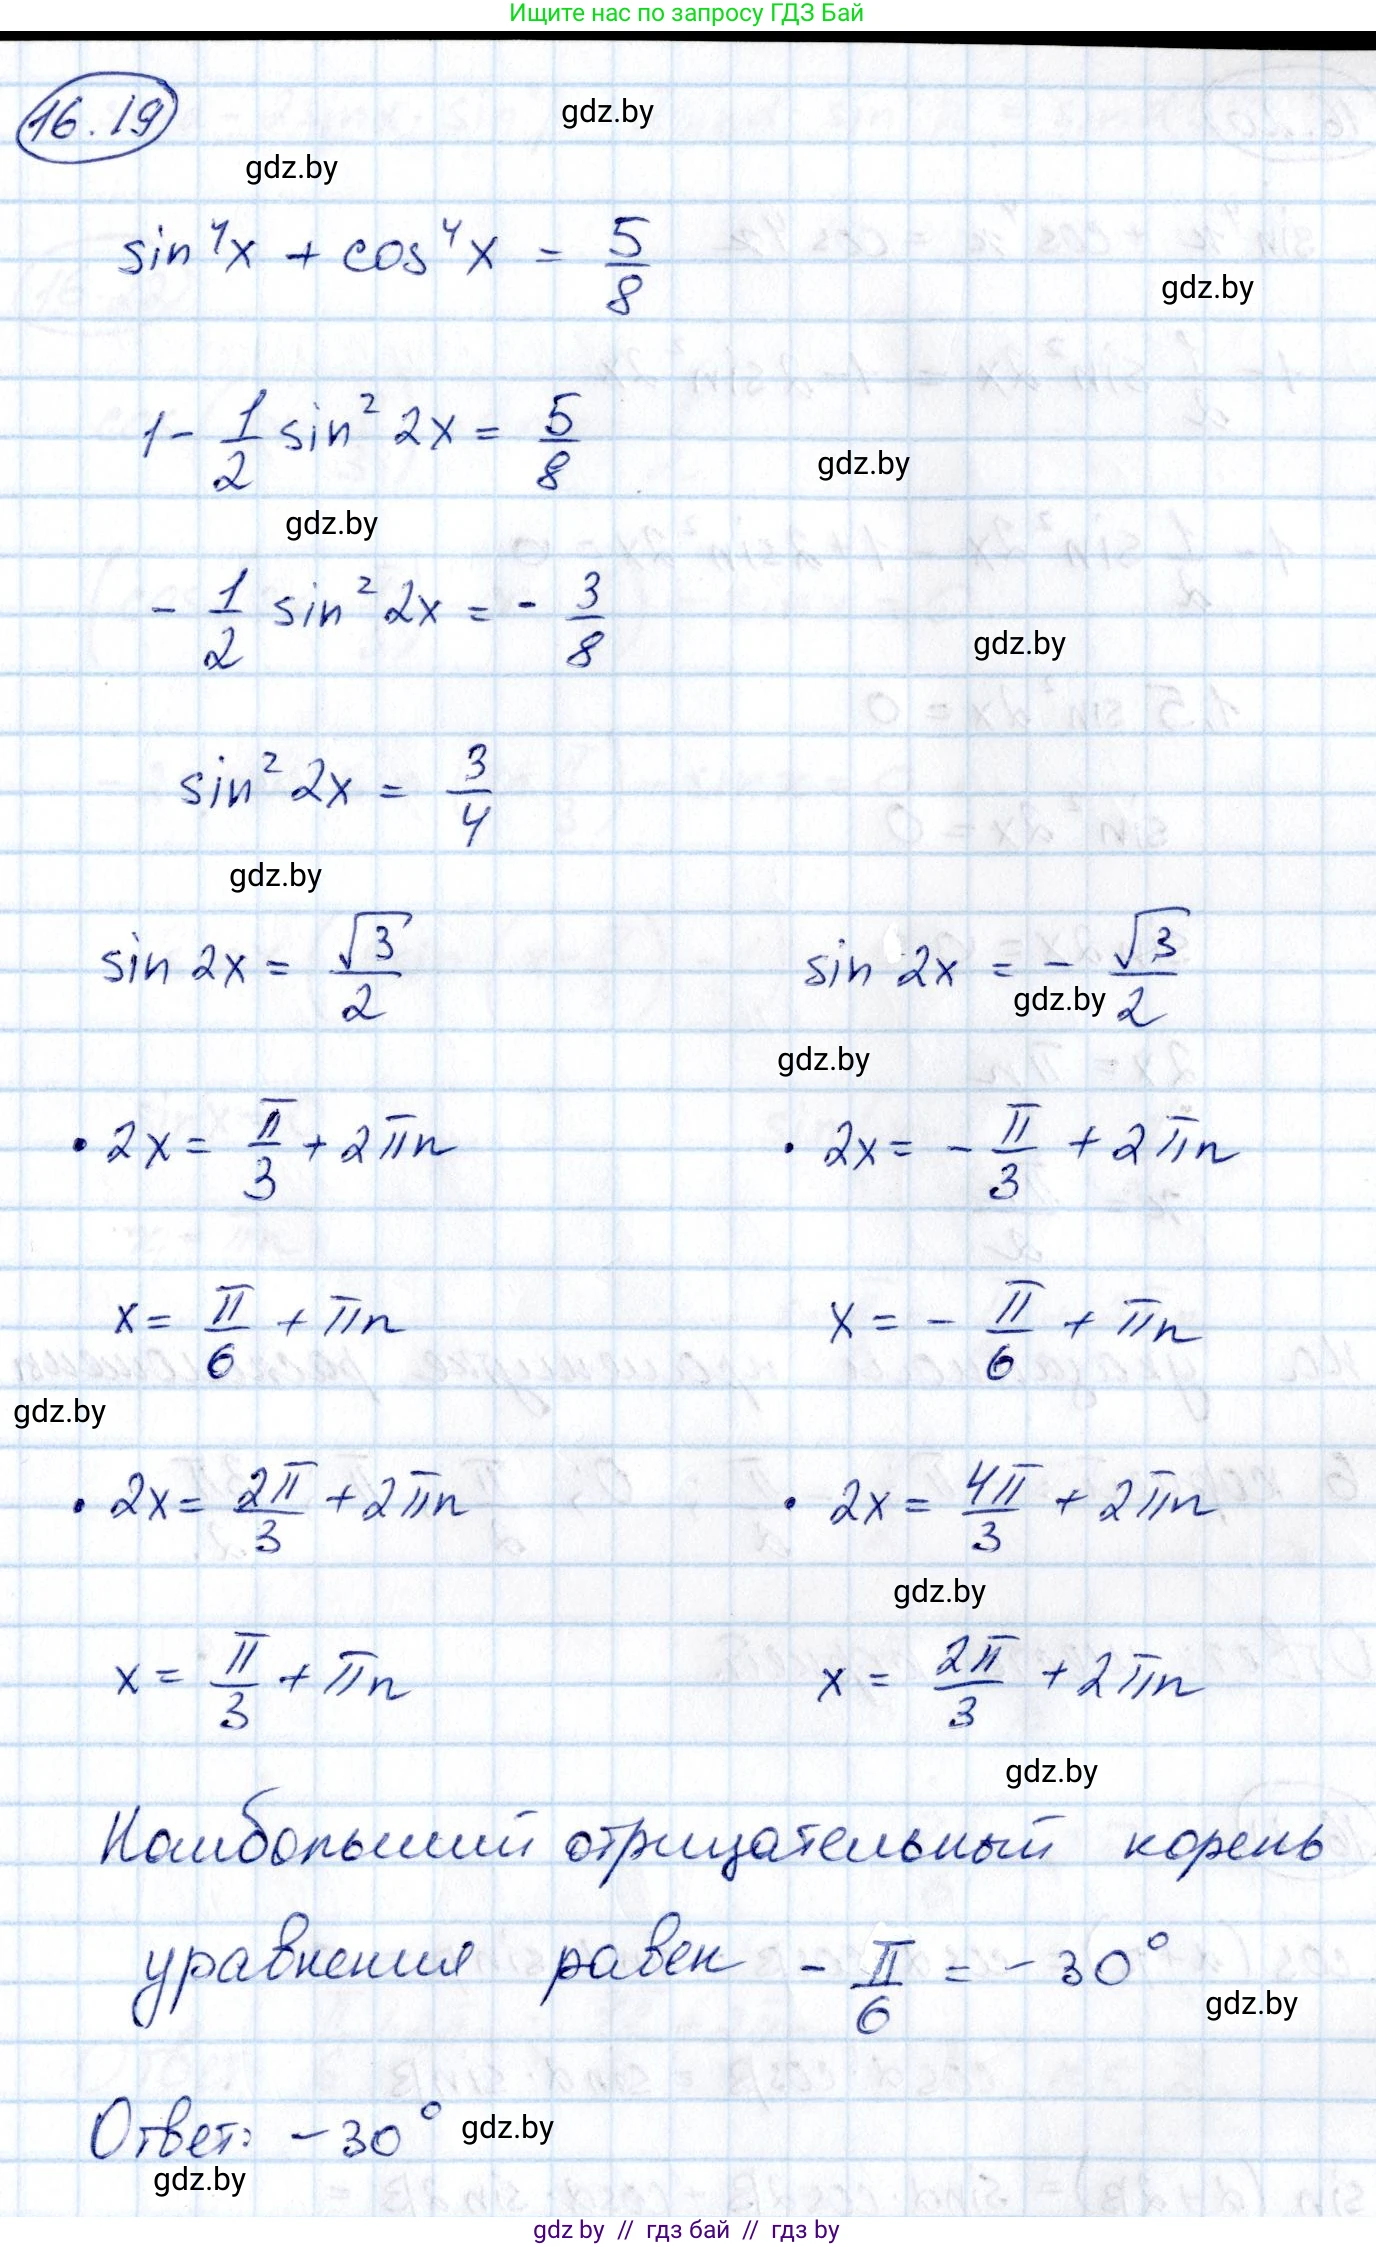 Ищите нас по запросу ГДЗ Бай
16.19
gdz.by
gdz.by
sin⁴x + cos⁴x = 5/8
gdz.by
1 - 1/2 sin² 2x = 5/8
gdz.by
gdz.by
- 1/2 sin² 2x = - 3/8
gdz.by
sin² 2x = 3/4
gdz.by
sin 2x = √3/2
sin 2x = - √3/2
gdz.by
gdz.by
• 2x = π/3 + 2πn
• 2x = - π/3 + 2πn
x = π/6 + πn
x = - π/6 + πn
gdz.by
• 2x = 2π/3 + 2πn
• 2x = 4π/3 + 2πn
gdz.by
x = π/3 + πn
x = 2π/3 + 2πn
gdz.by
Наибольший отрицательный корень
уравнения равен - π/6 = - 30°
gdz.by
Ответ: - 30°
gdz.by
gdz.by
gdz by // гдз бай // гдз by